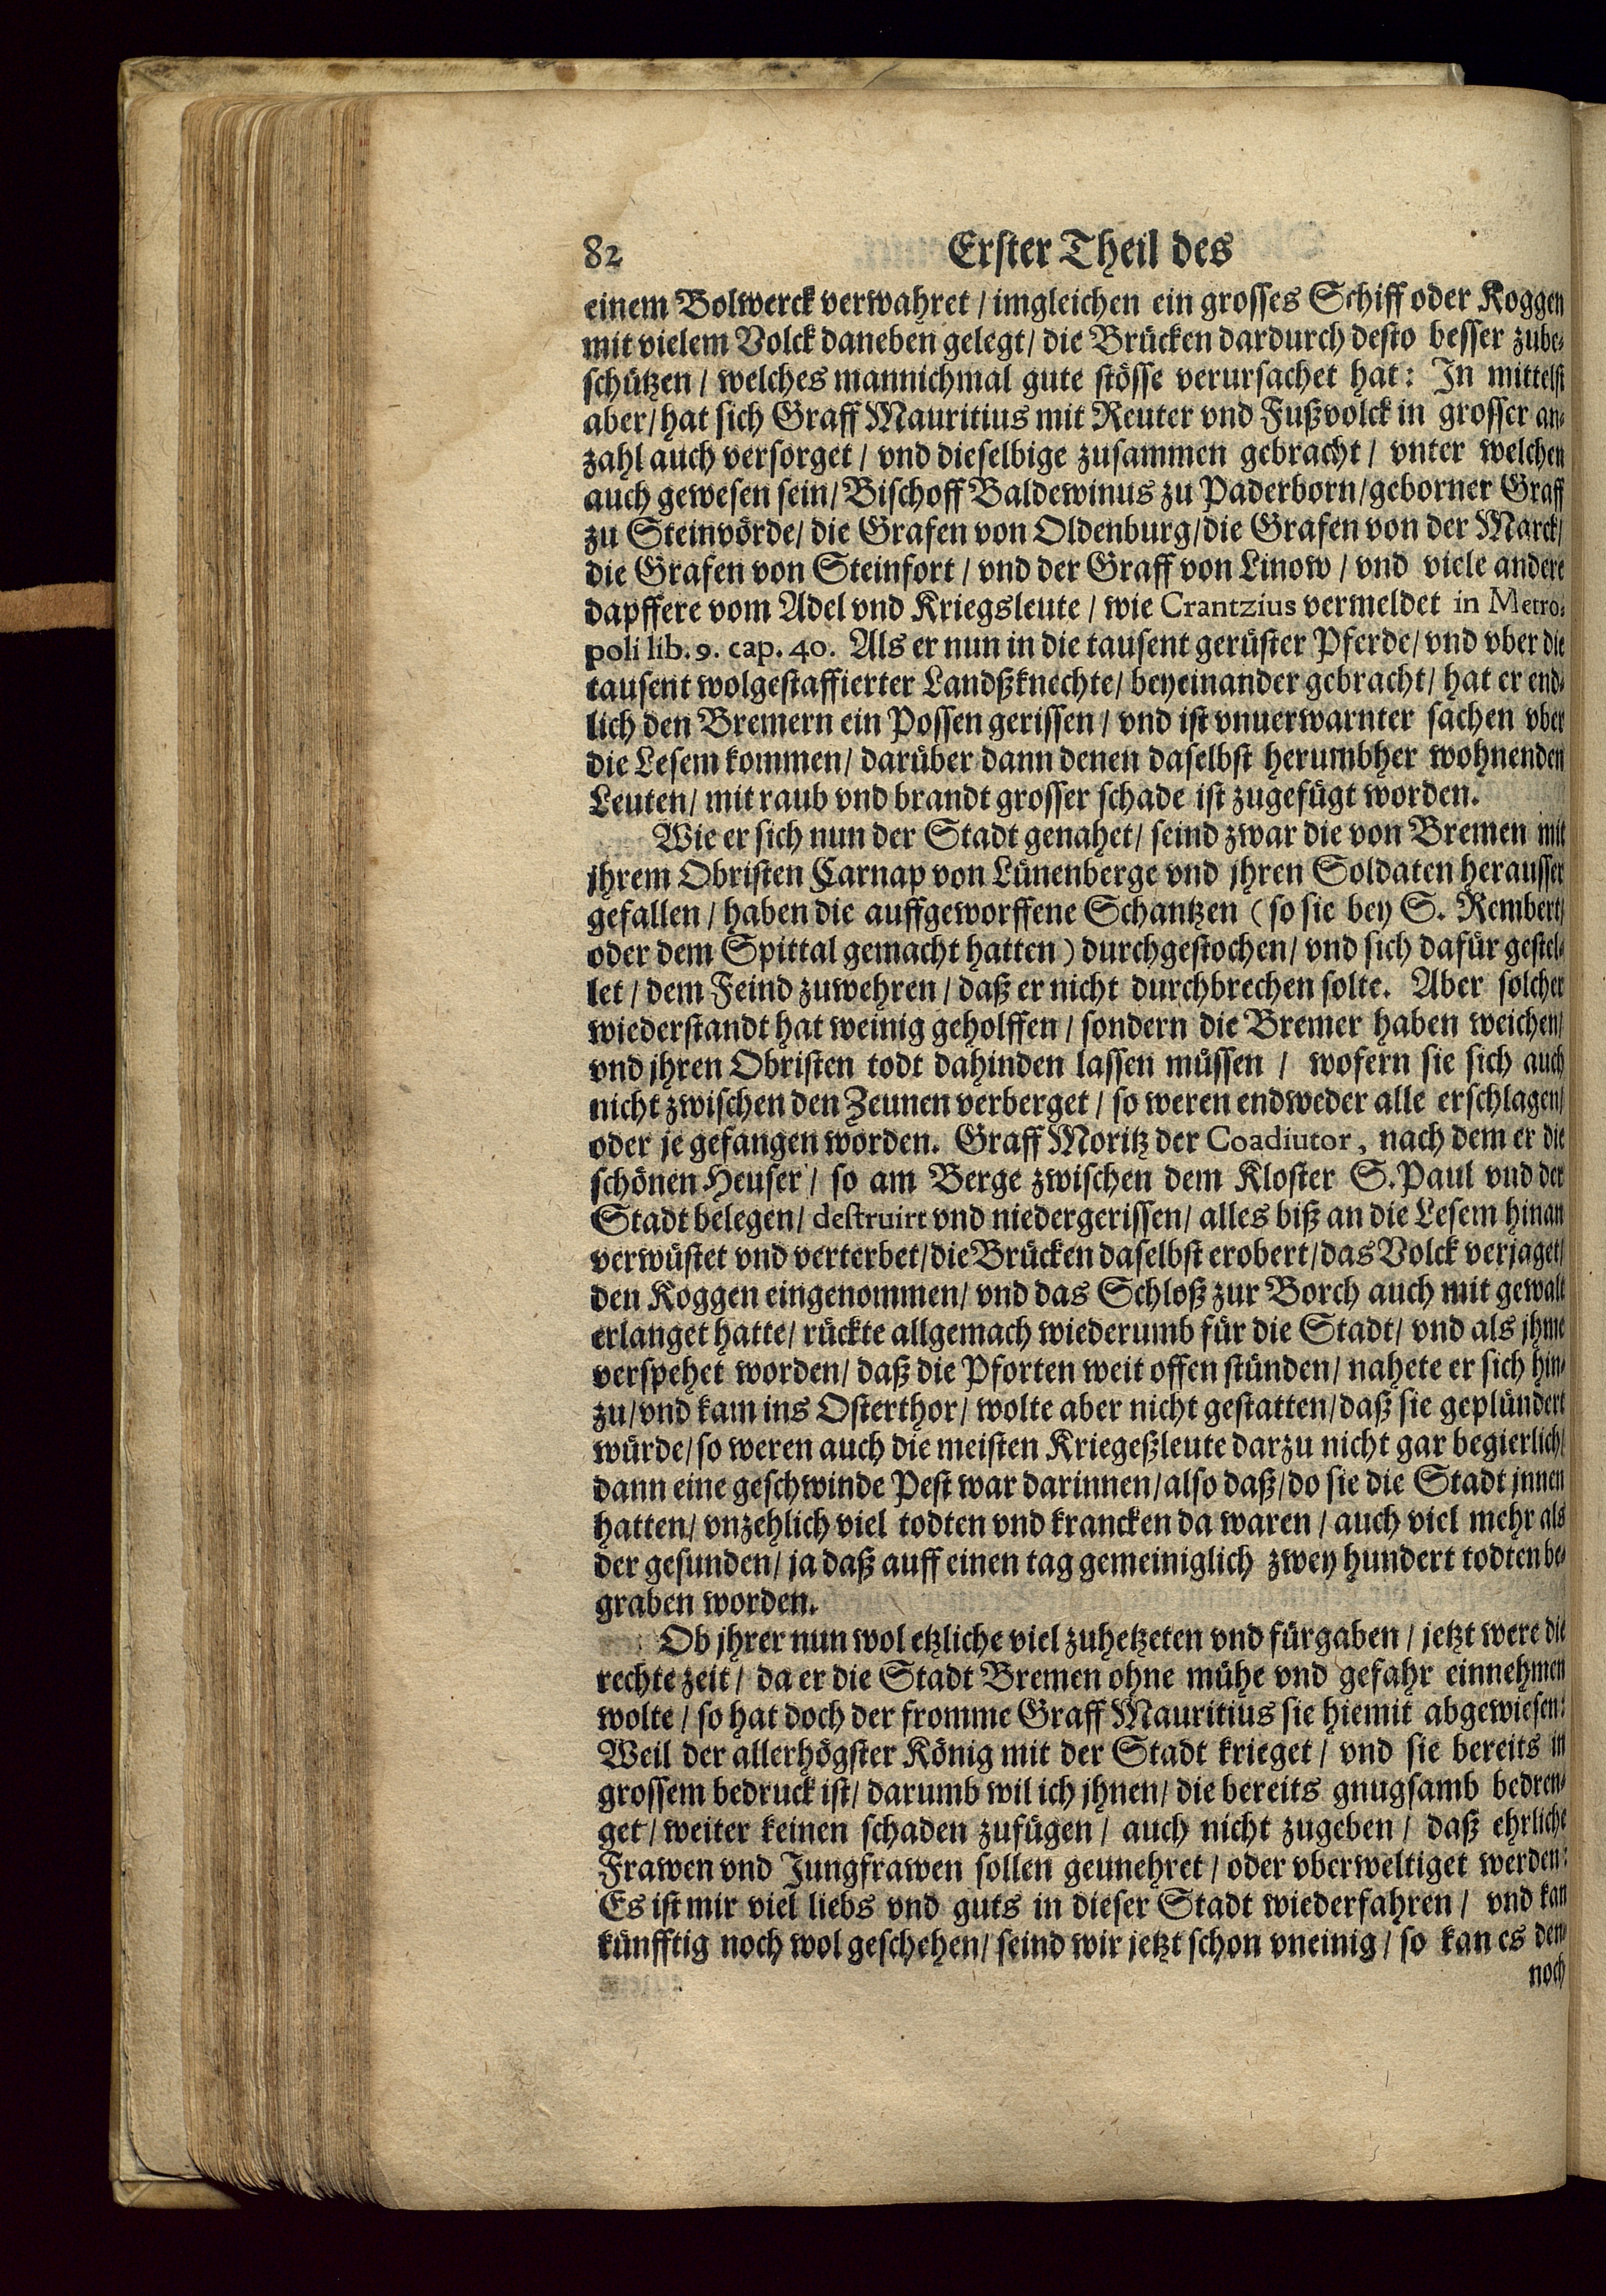 82 Erster Theil des
einem Bolwerck verwahret / imgleichen ein grosses Schiff oder Koggen
mit vielem Volck daneben gelegt / die Brücken dardurch desto besser zube-
schützen / welches mannichmal gute stösse verursachet hat: In mittelst
aber / hat sich Graff Mauritius mit Reuter vnd Fußvolck in grosser an-
zahl auch versorget / vnd dieselbige zusammen gebracht / vnter welchen
auch gewesen sein / Bischoff Baldewinus zu Paderborn / geborner Graff
zu Steinvörde / die Grafen von Oldenburg / die Grafen von der Marck /
die Grafen von Steinfort / vnd der Graff von Linow / vnd viele andere
dapffere vom Adel vnd Kriegsleute / wie Crantzius vermeldet in Metro-
poli lib. 9. cap. 40. Als er nun in die tausent gerüster Pferde / vnd vber die
tausent wolgestaffierter Landßknechte / beyeinander gebracht / hat er end-
lich den Bremern ein Possen gerissen / vnd ist vnuerwarnter sachen vber
die Lesem kommen / darüber dann denen daselbst herumbher wohnenden
Leuten / mit raub vnd brandt grosser schade ist zugefügt worden.
Wie er sich nun der Stadt genahet / seind zwar die von Bremen mit
jhrem Obristen Carnap von Lünenberge vnd jhren Soldaten herausser
gefallen / haben die auffgeworffene Schantzen (so sie bey S. Rembert /
oder dem Spittal gemacht hatten) durchgestochen / vnd sich dafür gestel-
let / dem Feind zuwehren / daß er nicht durchbrechen solte. Aber solcher
wiederstandt hat weinig geholffen / sondern die Bremer haben weichen /
vnd jhren Obristen todt dahinden lassen müssen / wofern sie sich auch
nicht zwischen den Zeunen verberget / so weren endweder alle erschlagen /
oder je gefangen worden. Graff Moritz der Coadiutor, nach dem er die
schönen Heuser / so am Berge zwischen dem Kloster S. Paul vnd der
Stadt belegen / destruirt vnd niedergerissen / alles biß an die Lesem hinan
verwüstet vnd verterbet / die Brücken daselbst erobert / das Volck verjaget /
den Koggen eingenommen / vnd das Schloß zur Borch auch mit gewalt
erlanget hatte / rückte allgemach wiederumb für die Stadt / vnd als jhme
verspehet worden / daß die Pforten weit offen stünden / nahete er sich hin-
zu / vnd kam ins Osterthor / wolte aber nicht gestatten / daß sie geplündert
würde / so weren auch die meisten Kriegeßleute darzu nicht gar begierlich /
dann eine geschwinde Pest war darinnen / also daß / do sie die Stadt jnnen
hatten / vnzehlich viel todten vnd krancken da waren / auch viel mehr als
der gesunden / ja daß auff einen tag gemeiniglich zwey hundert todten be-
graben worden.
Ob jhrer nun wol etzliche viel zuhetzeten vnd fürgaben / jetzt were die
rechte zeit / da er die Stadt Bremen ohne mühe vnd gefahr einnehmen
wolte / so hat doch der fromme Graff Mauritius sie hiemit abgewiesen:
Weil der allerhögster König mit der Stadt krieget / vnd sie bereits in
grossem bedruck ist / darumb wil ich jhnen / die bereits gnugsamb bedren-
get / weiter keinen schaden zufügen / auch nicht zugeben / daß ehrliche
Frawen vnd Jungfrawen sollen geunehret / oder vberweltiget werden:
Es ist mir viel liebs vnd guts in dieser Stadt wiederfahren / vnd kan
künfftig noch wol geschehen / seind wir jetzt schon vneinig / so kan es den-
noch